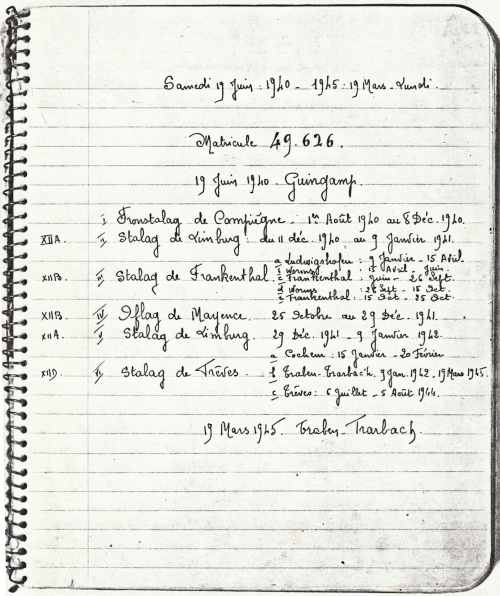 Samedi 19 Juin : 1940 - 1945 : 19 Mars - Lundi.
Matricule 49.626.
19 Juin 1940 - Guingamp.
I Fronstalag de Compiègne. 1er Août 1940 au 8 Déc. 1940.
XII A. II Stalag de Limburg : du 11 déc. 1940 au 9 Janvier 1941.
a Ludwigshofen : 9 Janvier - 15 Avril.
b Worms : 15 Avril - Juin.
XII B. III Stalag de Frankenthal. c Frankenthal : Juin - 26 Sept.
d Worms : 26 Sept - 15 Oct.
e Frankenthal : 15 Oct - 25 Oct.
XII B. IV Oflag de Mayence. 25 Octobre au 29 Déc. 1941.
XII A. V Stalag de Limburg. 29 Déc. 1941 - 9 Janvier 1942.
a Cochem : 15 Janvier - 20 Février
XII D. VI Stalag de Trêves. b Traben-Trarbach. 9 Jan. 1942 - 19 Mars 1945.
c Trêves : 6 Juillet - 5 Août 1944.
19 Mars 1945. Traben-Trarbach.